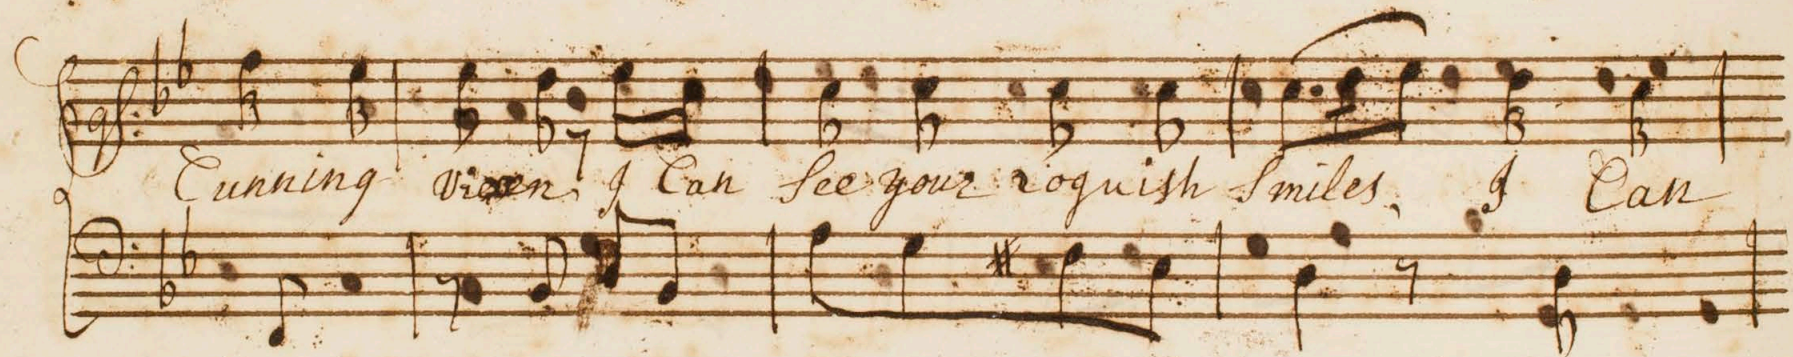 Cunning vixen, I Can See your roguish Smiles, I Can